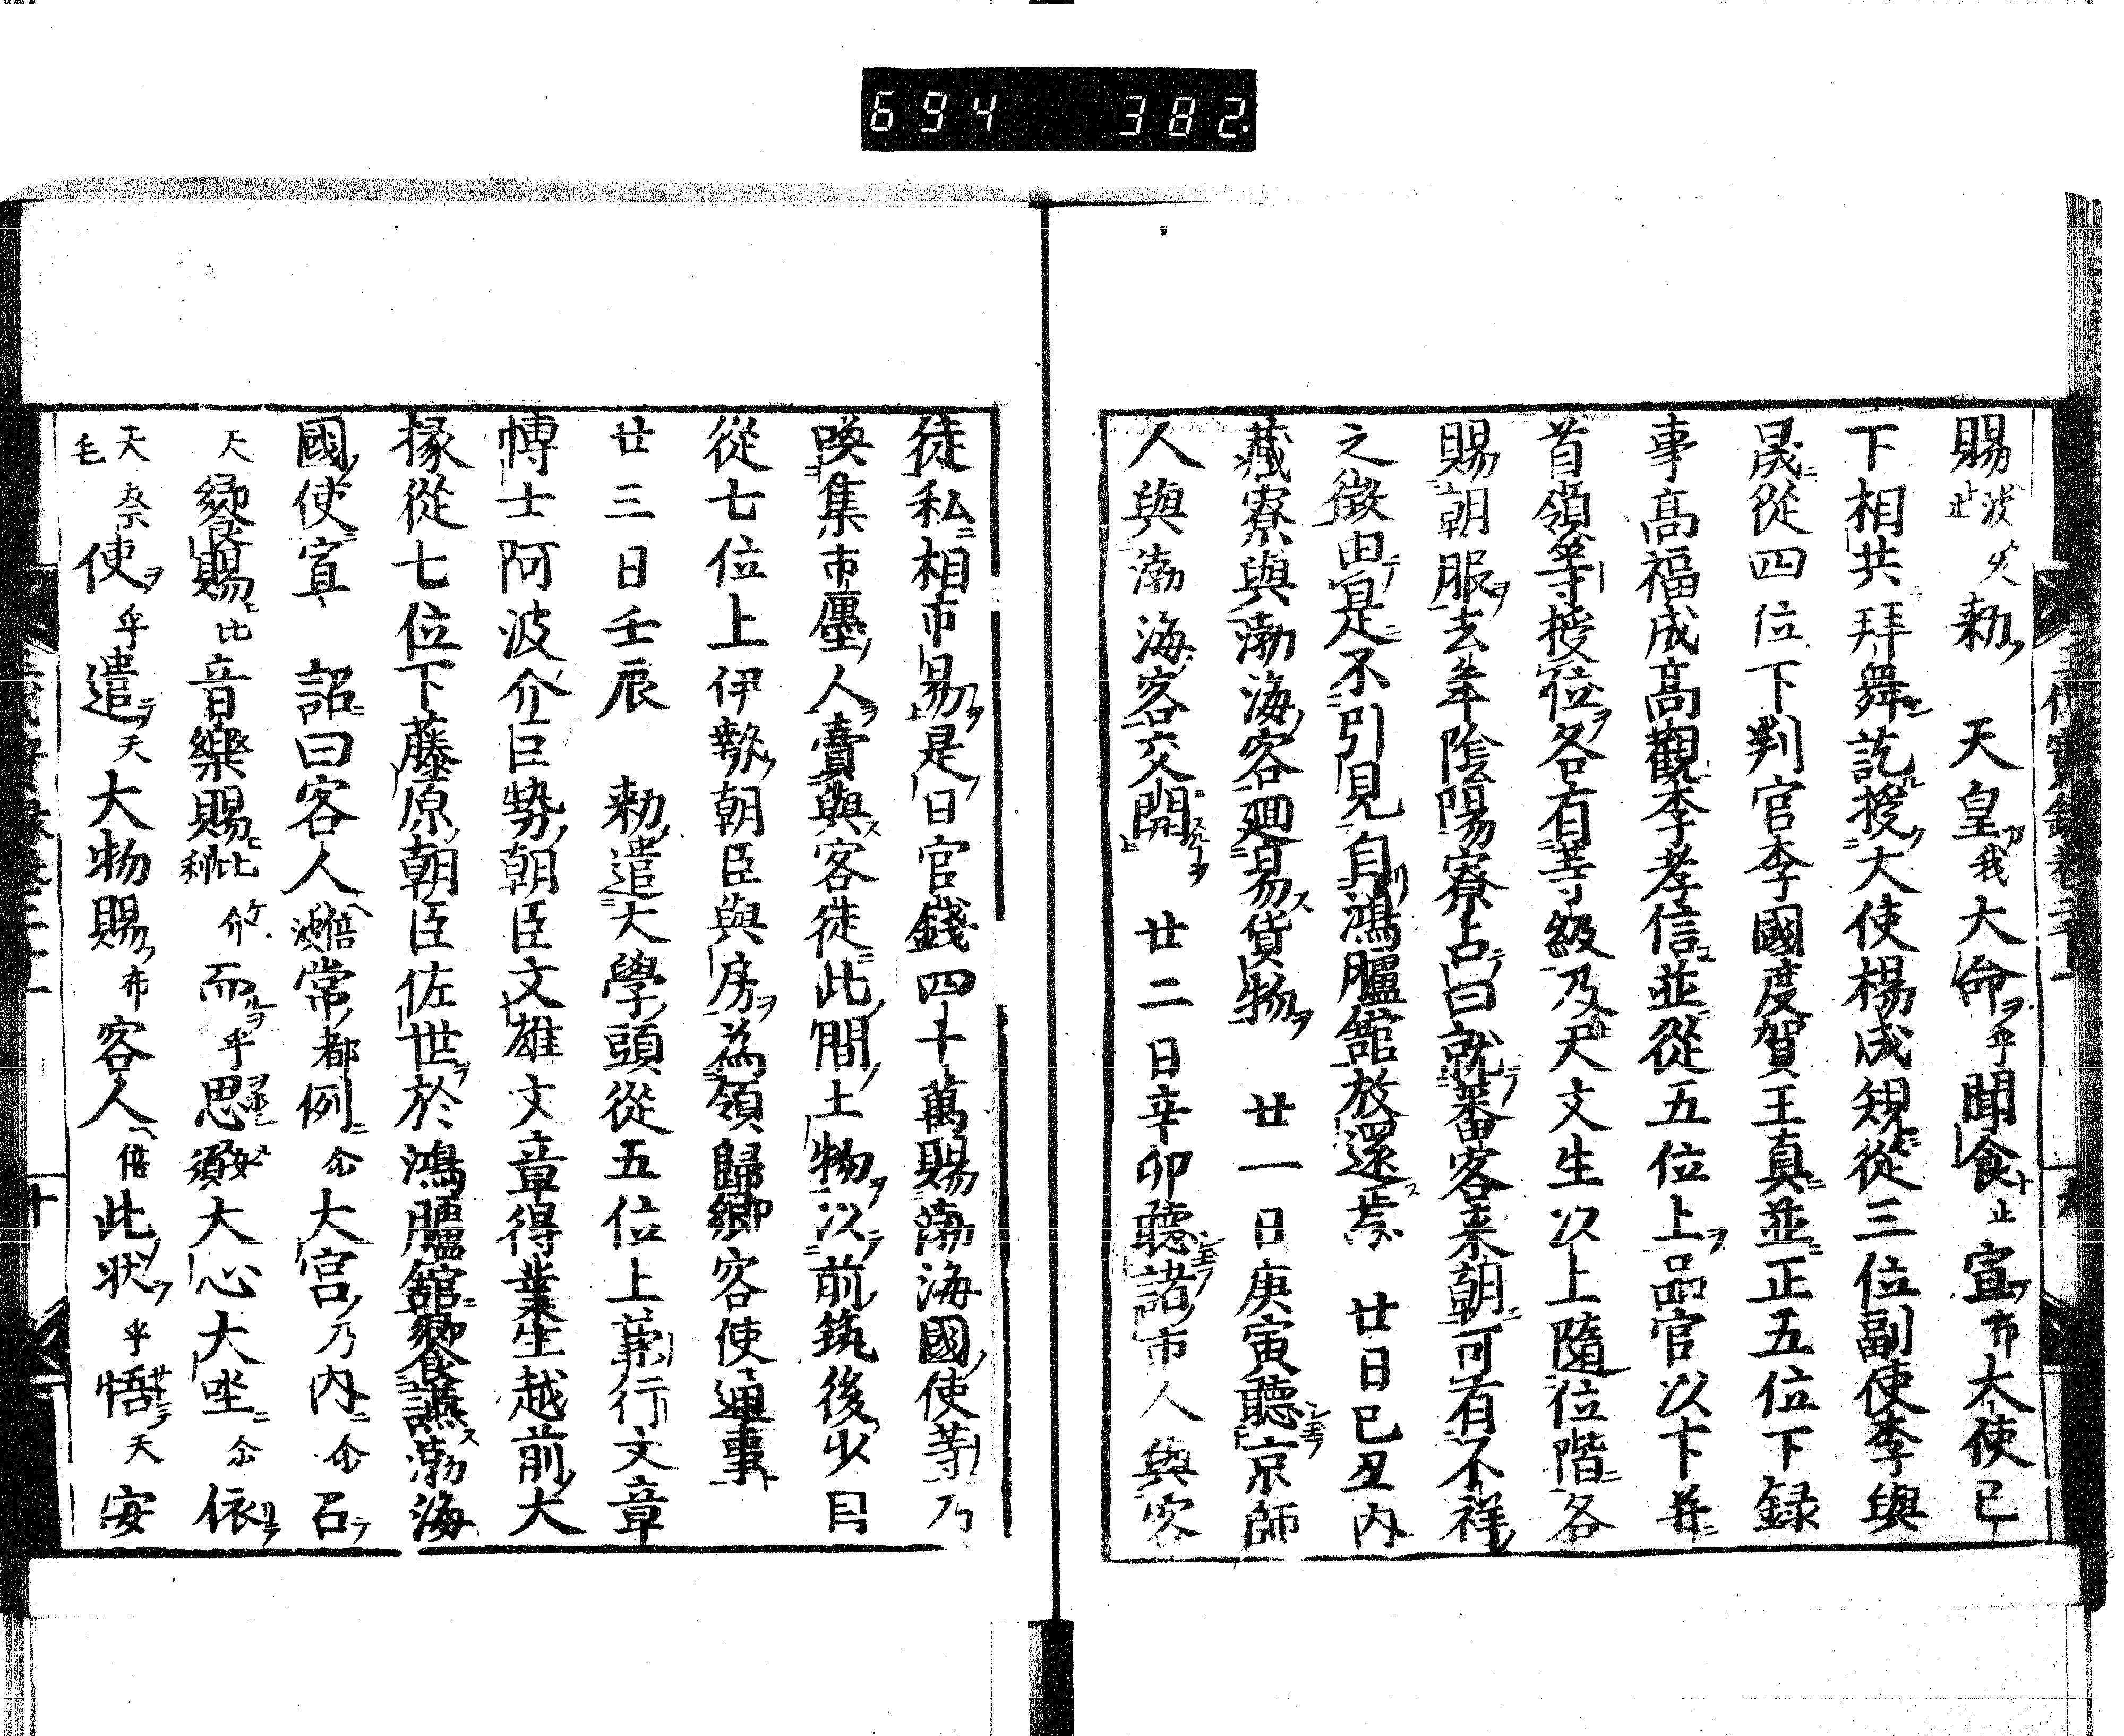 694 382
賜波久止勅天皇我大命乎聞食止宣布大使已
下相共拜舞訖授大使楊成規從三位副使李與
晟從四位下判官李國度賀王眞並正五位下録
事高福成高觀李孝信並從五位上品官以下并
首領等授位各有等級及天文生以上隨位階各
賜朝服去年陰陽寮占曰就蕃客来朝可有不祥
之徴由是不引見自鴻臚舘放還焉 廿日己丑内
藏寮與渤海客廻易貨物 廿一日庚寅聽京師
人與渤海客交關 廿二日辛卯聽諸市人與客
徒私相市易是日官錢四十萬賜渤海國使等乃
喚集市廛人賣與客徒此間土物以前筑後少目
從七位上伊勢朝臣與房爲領歸鄉客使通事
廿三日壬辰 勅遣大學頭從五位上兼行文章
博士阿波介巨勢朝臣文雄文章得業生越前大
掾從七位下藤原朝臣佐世於鴻臚舘饗讌渤海
國使宣 詔曰客人倍波常都例尒大宮乃内尒召
天饗賜比音樂賜比利介而乎思須大心大坐尒依
天奈毛使乎遣天大物賜布客人倍此状乎悟天安